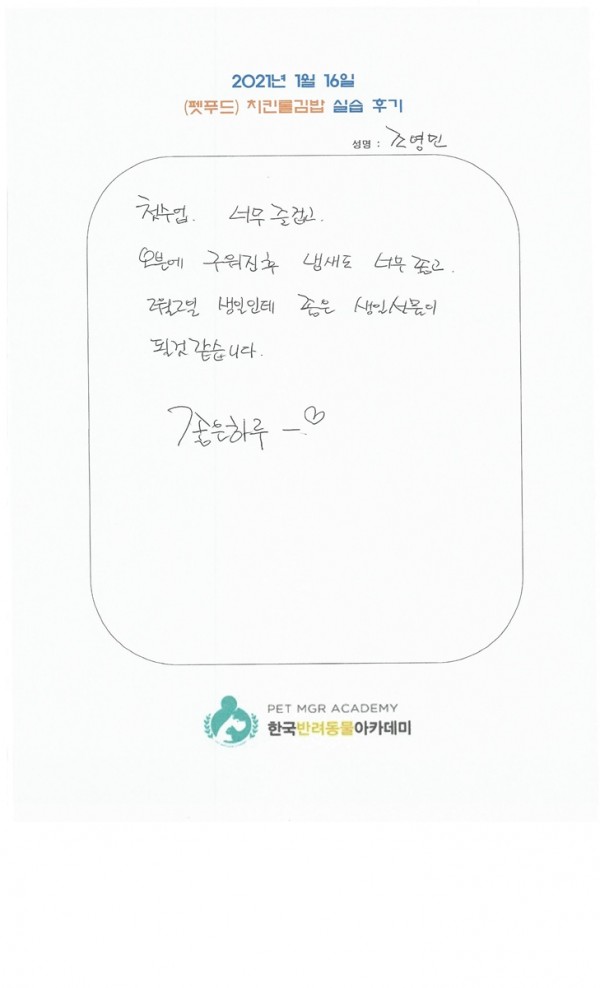 2021년 1월 16일
(펫푸드) 치킨롤김밥 실습 후기
성명 : 조영민
첫수업. 너무 즐겁고.
오븐에 구워진후 냄새도 너무 좋고.
2월2일 생일인데 좋은 생일선물이
될것같습니다.
좋은하루 — ♡
PET MGR ACADEMY
한국반려동물아카데미